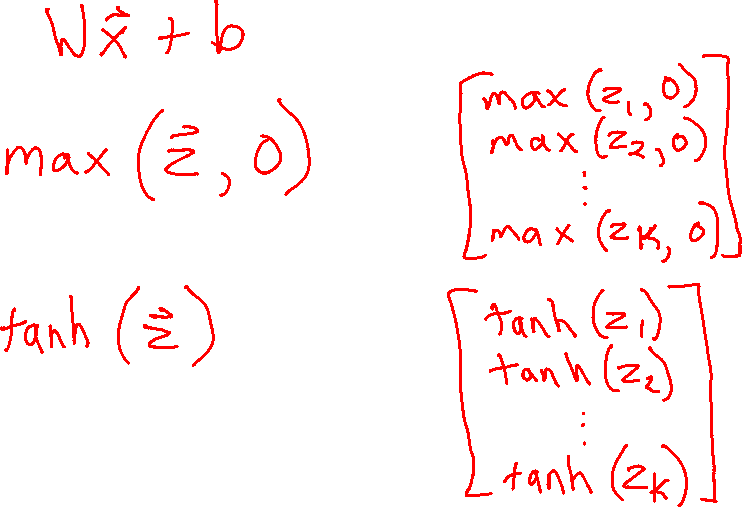 Wx⃗ + b
max (z⃗, 0)
[max (z₁, 0)
max (z₂, 0)
⋮
max (zₖ, 0)]
tanh (z⃗)
[tanh (z₁)
tanh (z₂)
⋮
tanh (zₖ)]